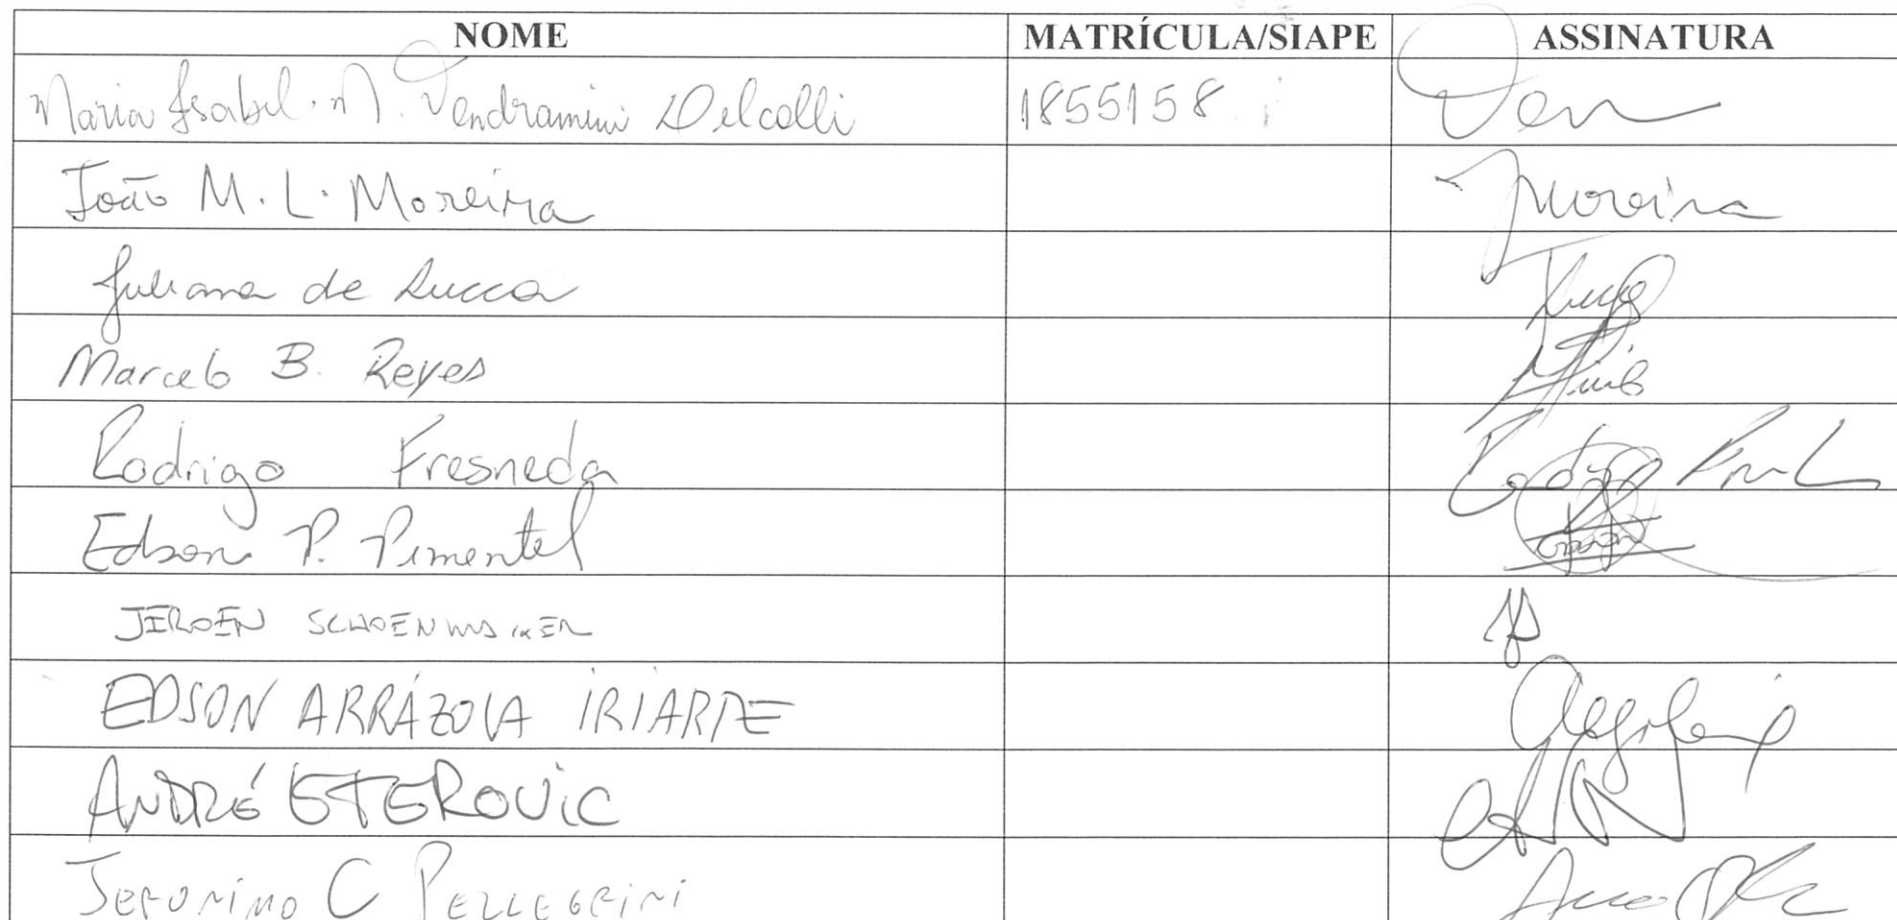 NOME MATRÍCULA/SIAPE ASSINATURA
Maria Isabel. M. Vendramini Delcolli 1855158
João M. L. Moreira Moreira
Juliana de Lucca
Marcelo B. Reyes
Rodrigo Fresneda
Edson P. Pimentel
JEROEN SCHOENMAKER
EDSON ARRÁZOLA IRIARTE
ANDRÉ ETEROVIC
JERONIMO C PELLEGRINI